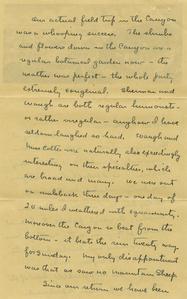 Our actual field trip in the Canyon
was a whooping success. The shrubs
and flowers down in the Canyon are a
regular botanical garden now - the
weather was perfect - the whole party
extremely congenial. Sherman and
Waugh are both regular humorists -
or rather irregular - anyhow I have
seldom laughed so hard. Waugh and
Miss Cotter were naturally also exceedingly
interesting on their specialties, which
are broad and many. We were out
on muleback three days - one day of
20 miles I weathered with equanimity.
Moreover the Canyon is best from the
bottom - it beats the rim twenty ways
for Sunday. My only disappointment
was that we saw no mountain sheep.
Since our return we have been